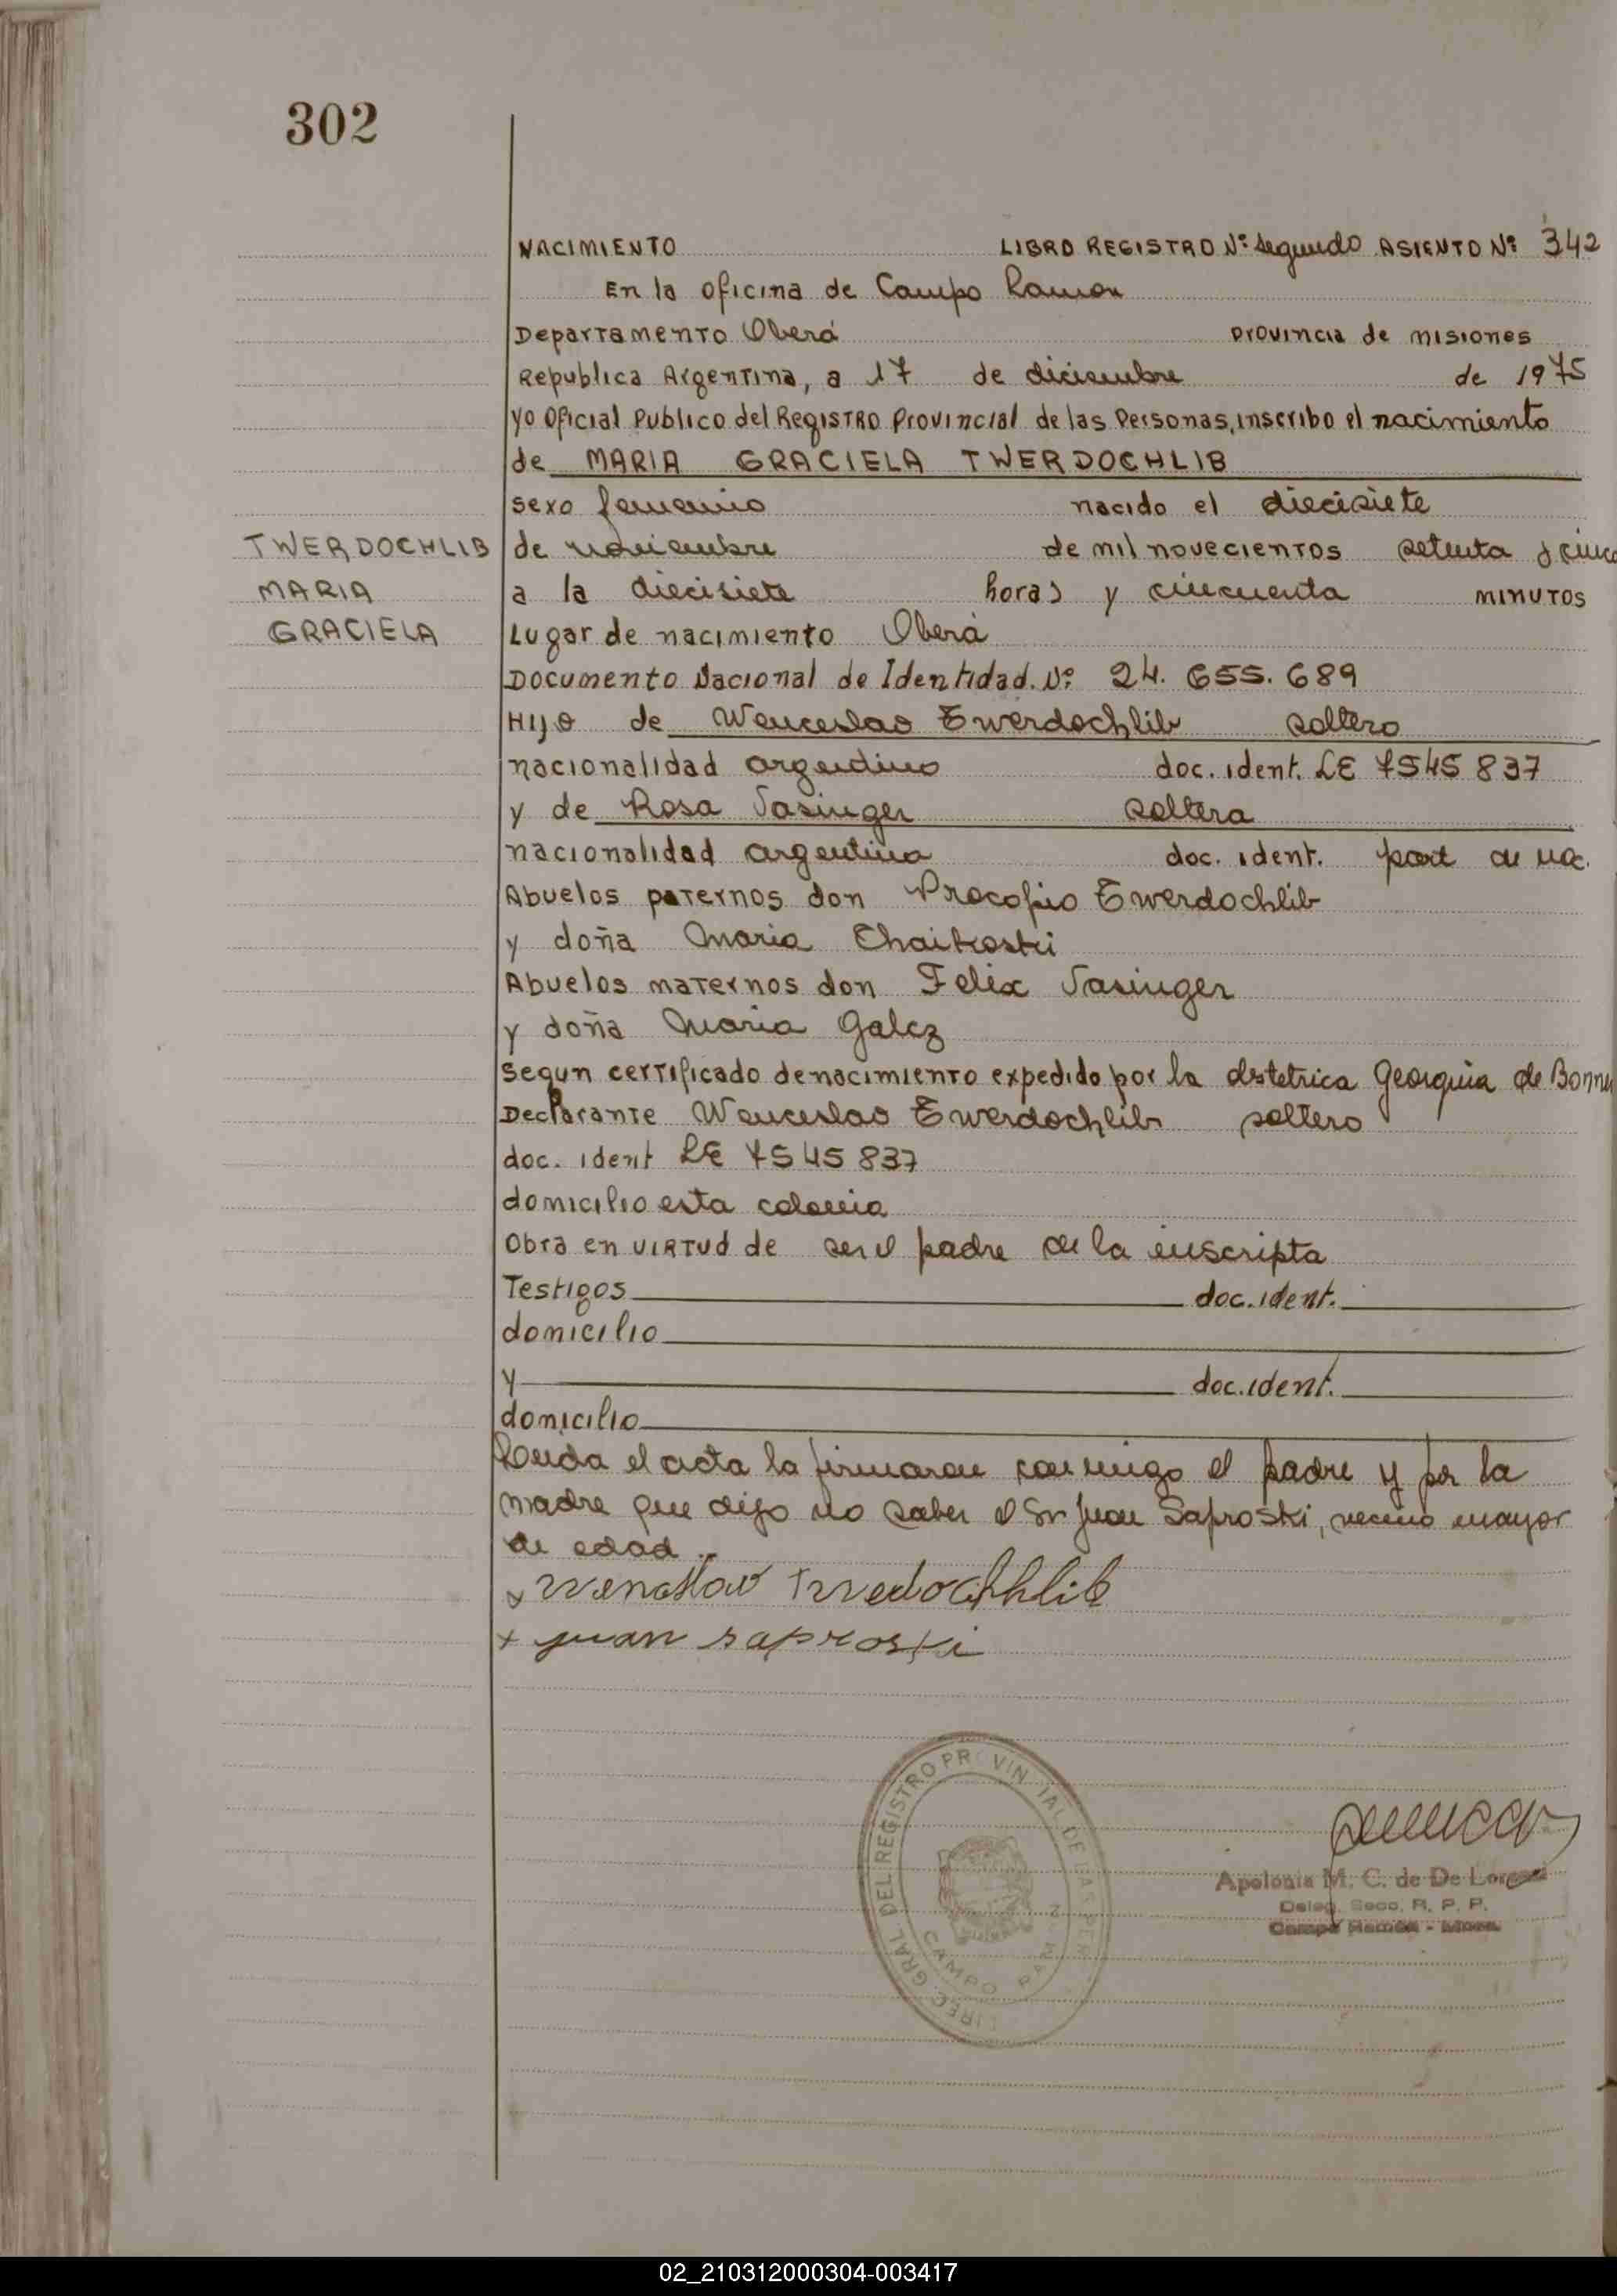 302
NACIMIENTO LIBRO REGISTRO Nº Segundo ASIENTO Nº 342
En la oficina de Campo Ramon
Departamento Oberá Provincia de misiones
Republica Argentina, a 17 de diciembre de 1975
yo Oficial Publico del Registro Provincial de las Personas, inscribo el nacimiento
de MARIA GRACIELA TWERDOCHLIB
sexo femenino nacido el diecisiete
TWERDOCHLIB
MARIA
GRACIELA
de noviembre de mil novecientos setenta y cinco
a la diecisiete horas y cincuenta minutos
Lugar de nacimiento Oberá
Documento Nacional de Identidad. Nº 24. 655. 689
Hijo de Wenceslao Twerdochlib soltero
nacionalidad argentino doc. ident. LE 7545 837
y de Rosa Vasinger soltera
nacionalidad argentina doc. ident. part de nac.
Abuelos paternos don Procopio Twerdochlib
y doña Maria Chaikoski
Abuelos maternos don Felix Vasinger
y doña Maria Galez
segun certificado de nacimiento expedido por la obstetrica Georguia de
Declarante Wenceslao Twerdochlib soltero
doc. ident LE 7545 837
domicilio esta colonia
Obra en virtud de ser el padre de la inscripta
Testigos doc. ident.
domicilio
y doc. ident.
domicilio
Leida el acta la firmaron conmigo el padre y por la
madre que dijo no saber el Sr Juan Saproski, vecino mayor
de edad.
x Wenceslao Twedochhlib
x juan saproski
DIREC. GRAL DEL REGISTRO PROVINCIAL DE LAS PER
CAMPO RAM
Apolonia M. C. de De Lorenzi
Deleg. Secc. R. P. P.
Campo Ramón - Mnes.
02_210312000304-003417